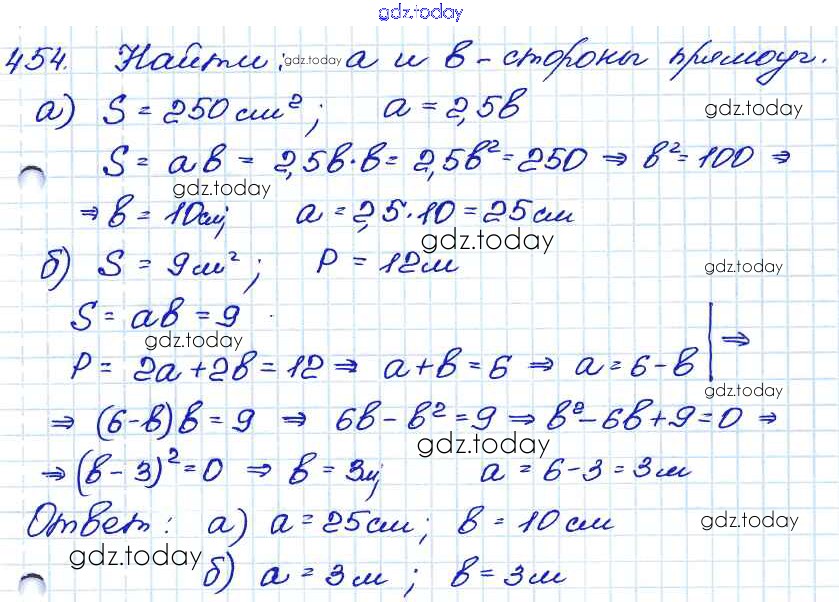 gdz.today
454. Найти: gdz.today a и b - стороны прямоуг.
а) S = 250 см²; a = 2,5b gdz.today
S = ab = 2,5b·b = 2,5b² = 250 ⇒ b² = 100 ⇒
gdz.today
⇒ b = 10см; a = 2,5·10 = 25 см
gdz.today
б) S = 9 м²; P = 12 м gdz.today
S = ab = 9
gdz.today
P = 2a + 2b = 12 ⇒ a + b = 6 ⇒ a = 6 - b | ⇒
gdz.today
⇒ (6 - b)b = 9 ⇒ 6b - b² = 9 ⇒ b² - 6b + 9 = 0 ⇒
gdz.today
⇒ (b - 3)² = 0 ⇒ b = 3м; a = 6 - 3 = 3 м
Ответ: а) a = 25 см; b = 10 см gdz.today
gdz.today
б) a = 3 м; b = 3 м